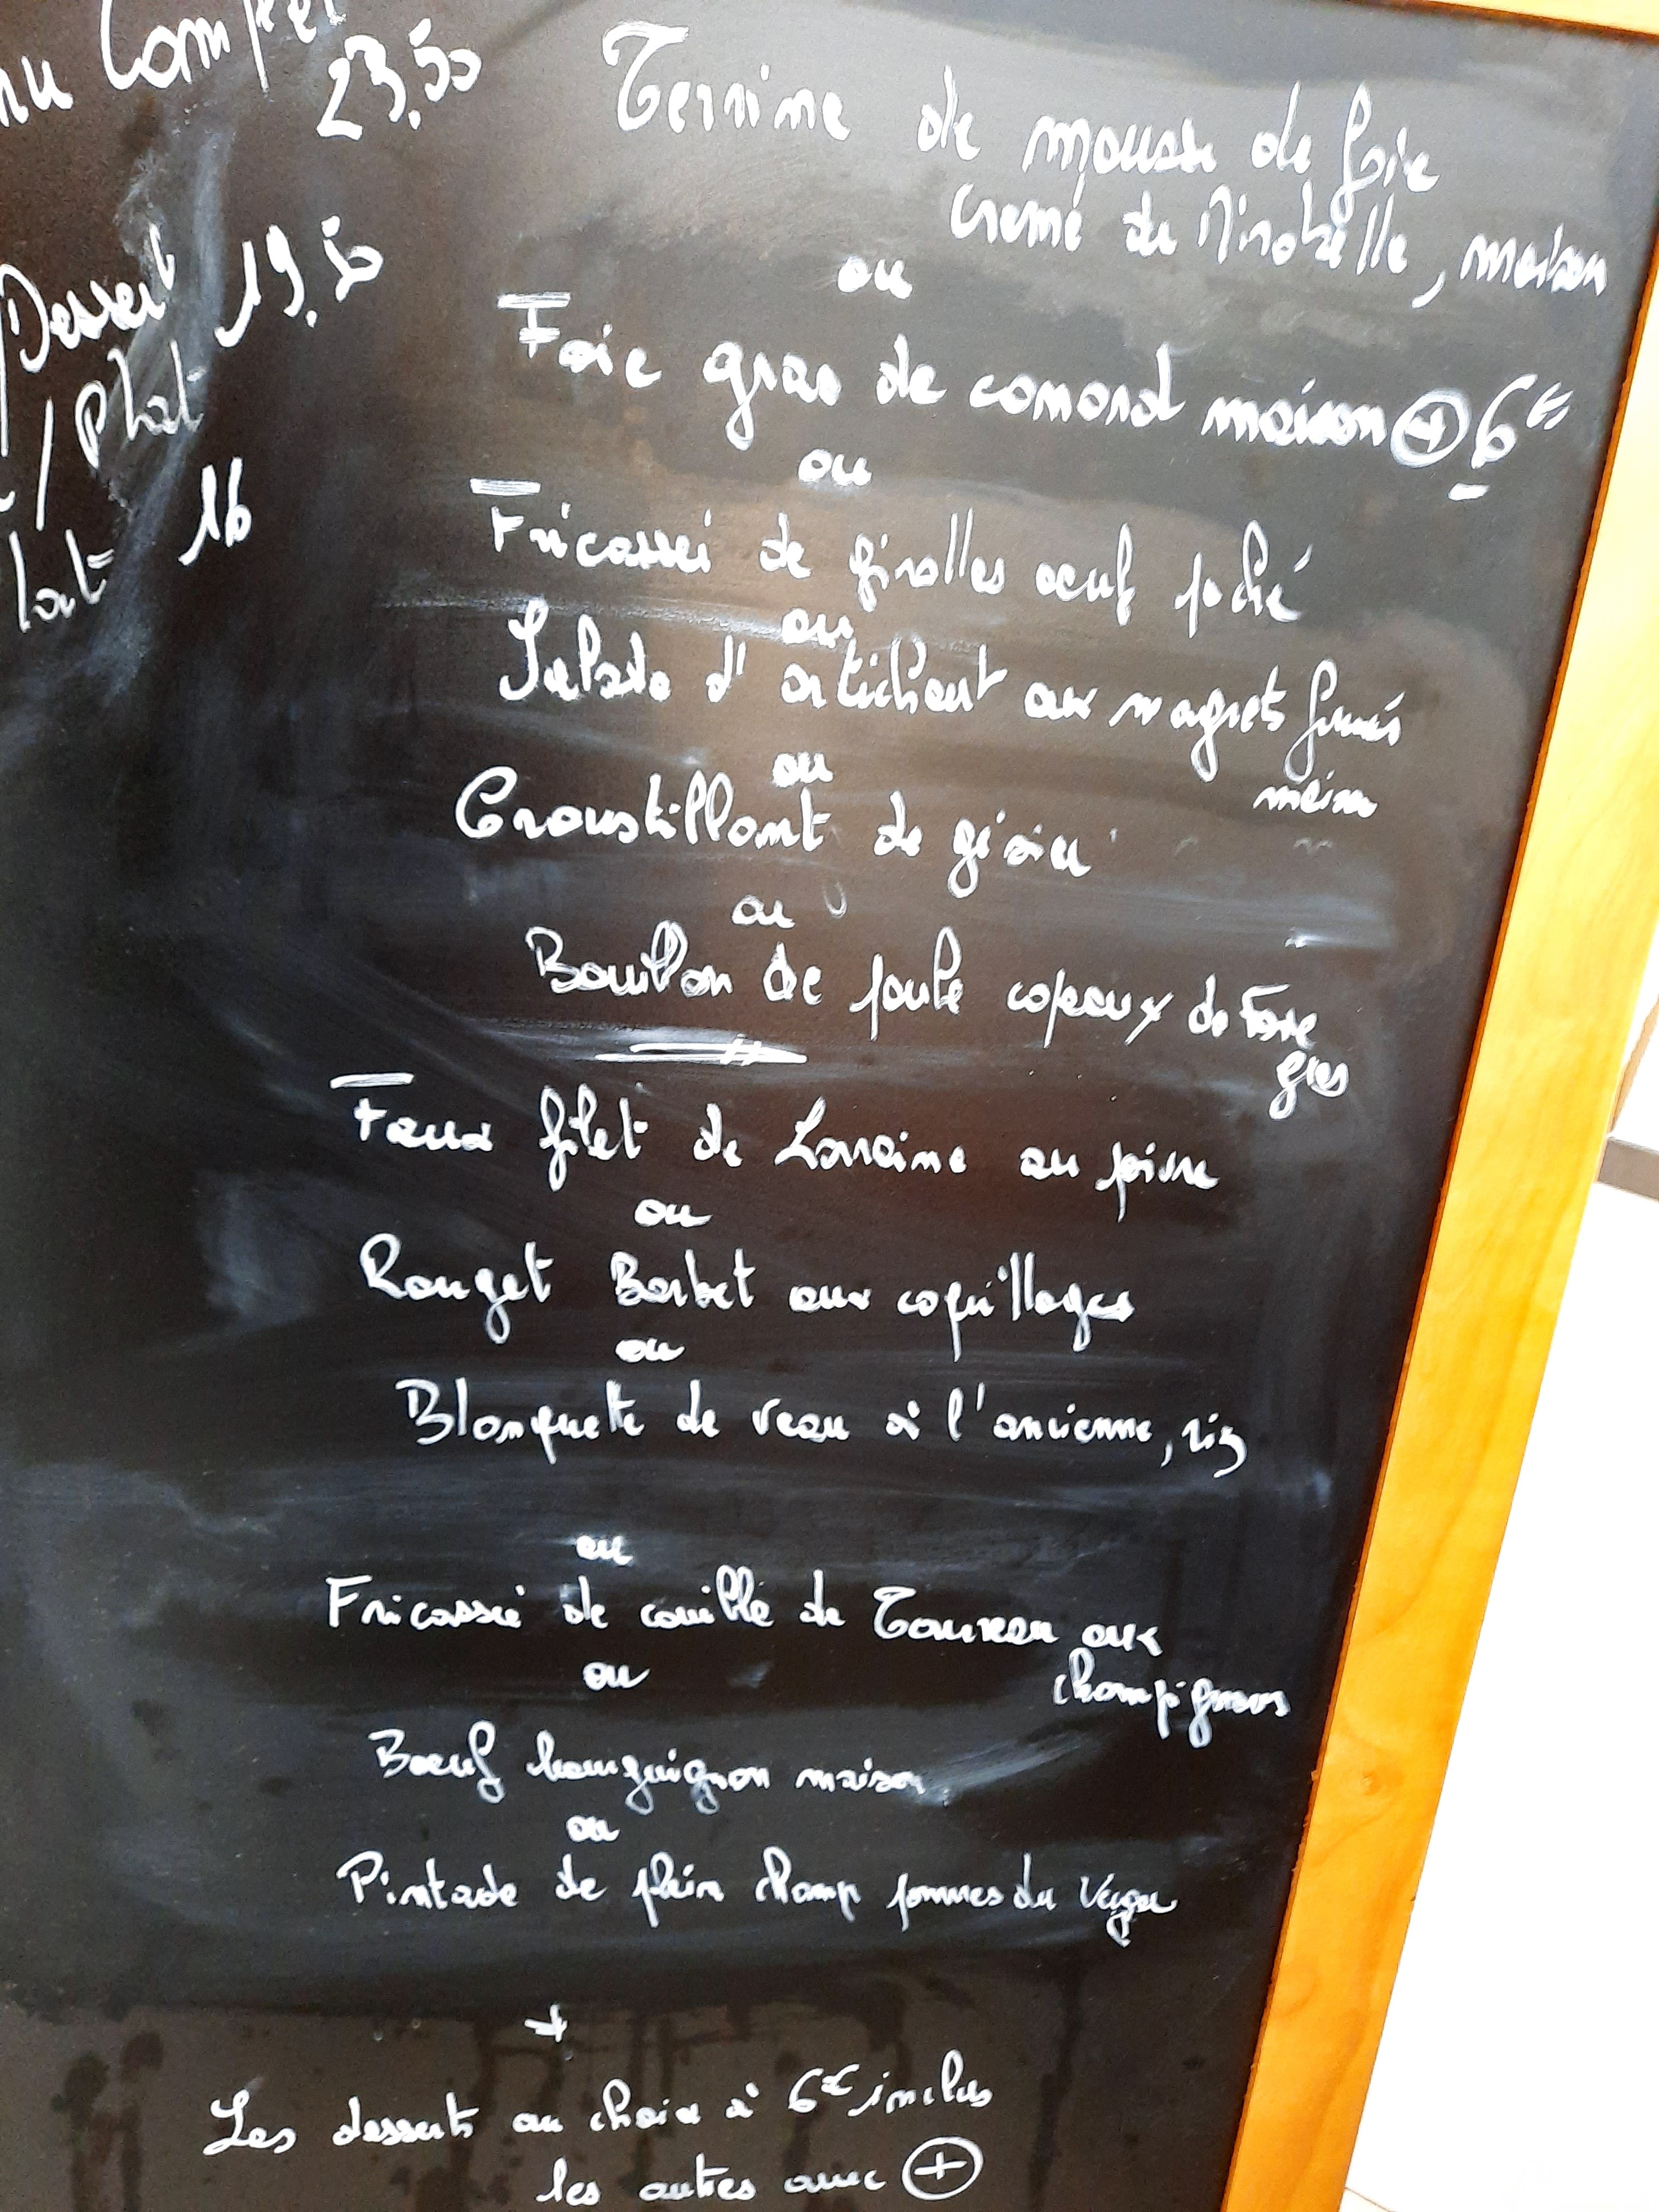 nu Complet
23,50
Dessert 19,50
/ Plat
/
lat 16
Terrine de mousse de foie
creme de Mirabelle, maison
ou
Foie gras de canard maison + 6€
ou
Fricassée de girolles oeuf poché
ou
Salade d'artichaut aux magrets fumés
maison
ou
Croustillant de gésier
ou
Bouillon de poule copeaux de Foie
gras
Faux filet de Lorraine au poivre
ou
Rouget Barbet aux coquillages
ou
Blanquette de veau à l'ancienne, riz
ou
Fricassée de couille de Taureau aux
champignons
ou
Boeuf bourguignon maison
ou
Pintade de plein champ pommes du Verger
+
Les desserts au choix à 6€ inclus
les autres avec +